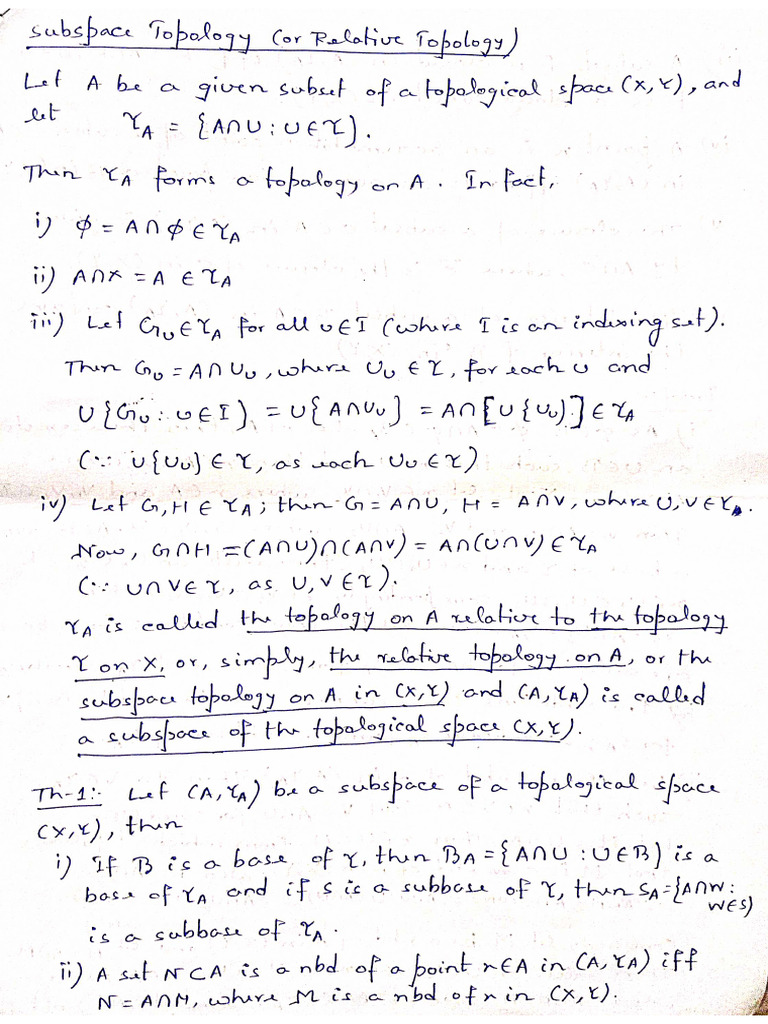 Subspace Topology (or Relative Topology)
Let A be a given subset of a topological space (X,τ), and
let τ_A = {A∩U : U∈τ}.
Then τ_A forms a topology on A. In fact,
i) ϕ = A∩ϕ ∈ τ_A
ii) A∩X = A ∈ τ_A
iii) Let G_υ ∈ τ_A for all υ∈I (where I is an indexing set).
Then G_υ = A∩U_υ, where U_υ ∈ τ, for each υ and
∪{G_υ : υ∈I} = ∪{A∩U_υ} = A∩[∪{U_υ}] ∈ τ_A
(∵ ∪{U_υ} ∈ τ, as each U_υ ∈ τ)
iv) Let G,H ∈ τ_A; then G = A∩U, H = A∩V, where U,V ∈ τ.
Now, G∩H = (A∩U)∩(A∩V) = A∩(U∩V) ∈ τ_A
(∵ U∩V ∈ τ, as U,V ∈ τ).
τ_A is called the topology on A relative to the topology
τ on X, or, simply, the relative topology on A, or the
subspace topology on A in (X,τ) and (A,τ_A) is called
a subspace of the topological space (X,τ).
Th-1:- Let (A,τ_A) be a subspace of a topological space
(X,τ), then
i) If B is a base of τ, then B_A = {A∩U : U∈B} is a
base of τ_A and if S is a subbase of τ, then S_A = {A∩W :
W∈S}
is a subbase of τ_A.
ii) A set N⊂A is a nbd of a point x∈A in (A,τ_A) iff
N = A∩M, where M is a nbd of x in (X,τ).